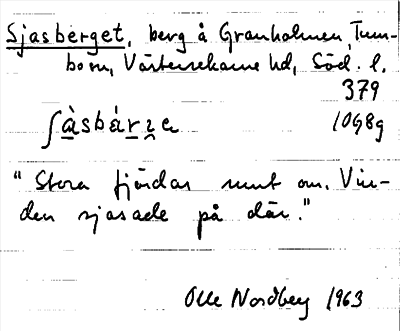 Sjasberget, berg å Granholmen, Tum-
bo sn, Västerrekarne hd, Söd. l.
379
ʃàsbár̲ɪe 10G8g
"Stora fjärdar runt om. Vin-
den sjasade på där."
Olle Nordberg 1963